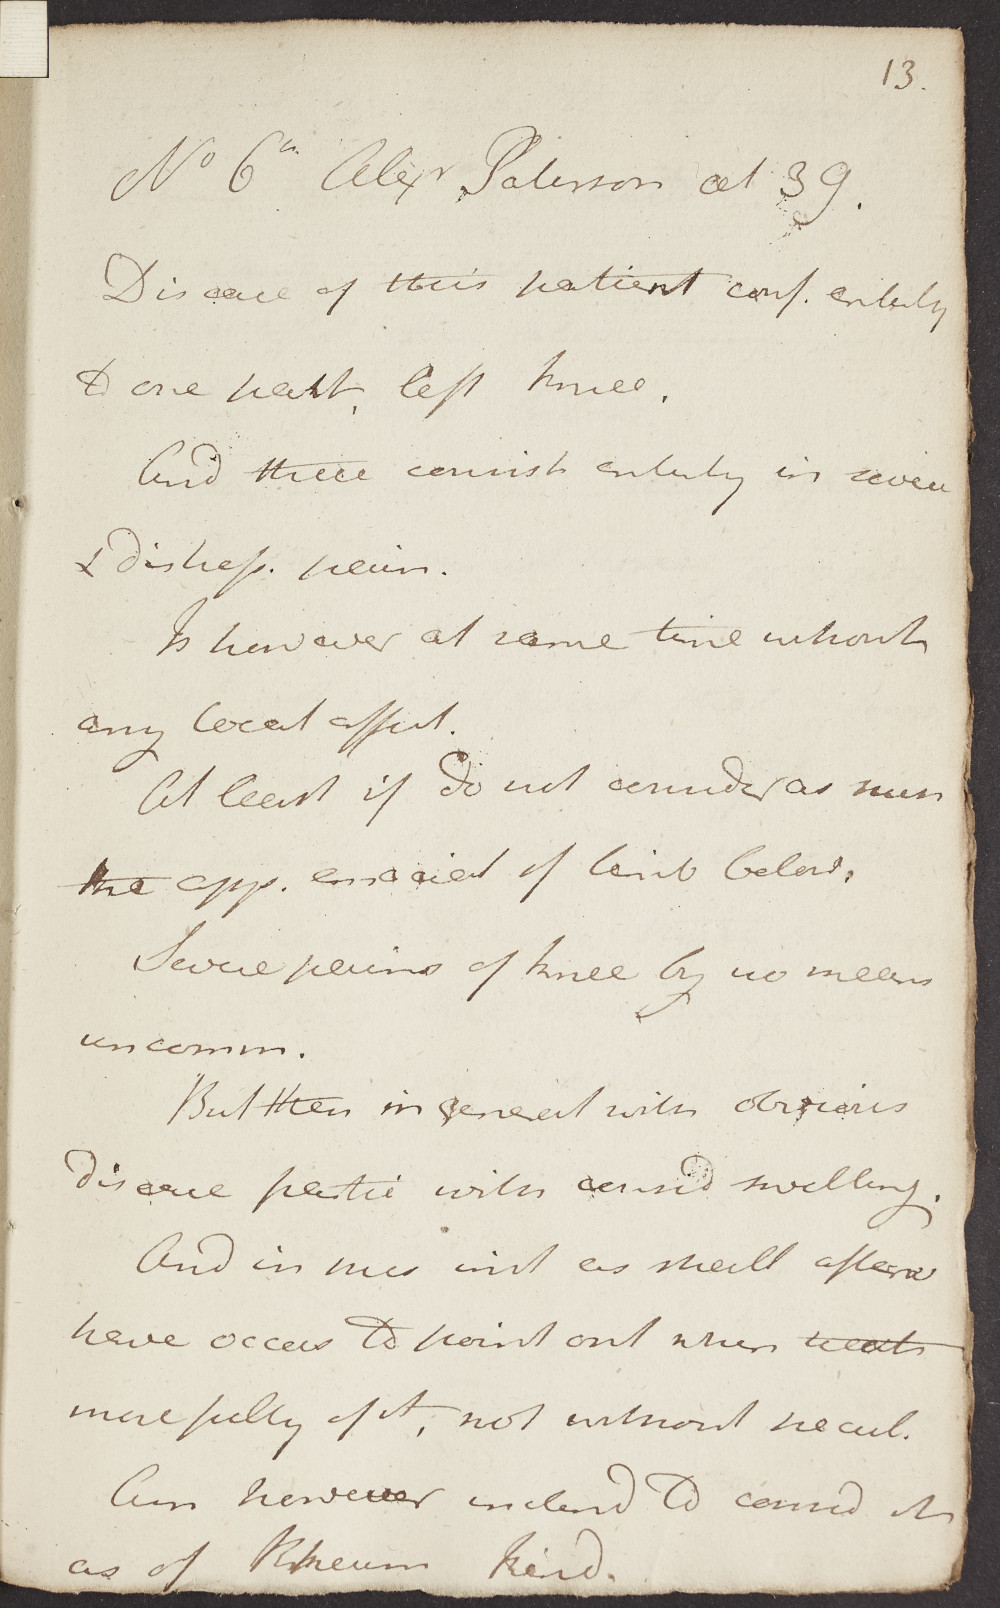 13.
No 6th Alexr Paterson aet 39.
Disease of this patient conf. entirely
to one part, left knee.
And there consists entirely in severe
& distress. pain.
Is however at same time without
any local affect.
At least if do not consider as such
the app. emaciat of limb below.
Severe pains of knee by no means
uncomm.
But then in general with obvious
disease partic with consid swelling.
And in this inst as shall afterw
have occas to point out when treat
more fully of it, not without pecul.
Am however inclend to consid it
as of Rheum kind.